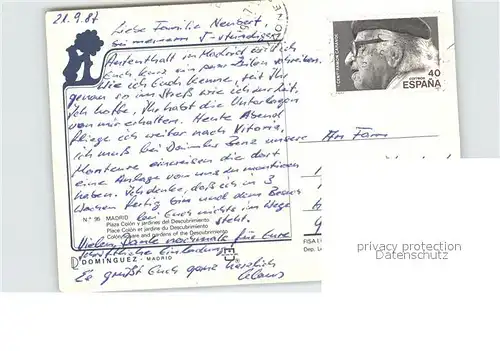 21.9.87
Liebe Familie Neubert,
bei meinem 5-stündigen
Aufenthalt in Madrid will ich
Euch kurz ein paar Zeilen schreiben.
Wie ich Euch kenne, seit Ihr
genau so im Streß wie ich derzeit.
Ich hoffe, Ihr habt die Unterlagen
von mir erhalten. Heute Abend
fliege ich weiter nach Vitoria.
Ich muß bei Daimler Benz unsere
Monteure einweisen die dort
eine Anlage von uns zu montieren
haben. Ich denke, daß ich in 3
Wochen fertig bin und dem Besuch
bei Euch nichts im Wege
steht.
N.º 96 MADRID
Plaza Colón y jardines del Descubrimiento
Place Colón et jardins du Descubrimiento
Colón square and gardens of the Descubrimiento
Vielen Dank nochmals für Eure
Einladung.
DOMINGUEZ - MADRID
Es grüßt Euch ganz herzlich
Claus
40
correos
ESPAÑA
An Fam
FISA
Dep. L
privacy protection
Datenschutz